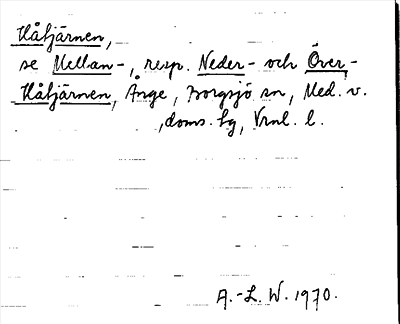 Håtjärnen,
se Mellan-, resp. Neder- och Över-
Håtjärnen, Ånge, Borgsjö sn, Med. v.
, doms. tg, Vrnl. l.
A.-L. W. 1970.